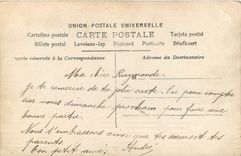 UNION POSTALE UNIVERSELLE
CARTE POSTALE
Cartolina postale
Tarjeta postal
Billete postal Levelezo-lap Postcard Postkarte Briefkaart
Partie réservée à la Correspondance
Adresse du Destinataire
Ma chère Raymonde.
Je te remercie de ta jolie carte.
compte
sur nous dimanche prochain pour faire une
bonne partie.
Nous t'embrassons ainsi que tes sœurs et tes
parents.
Ton petit ami: André